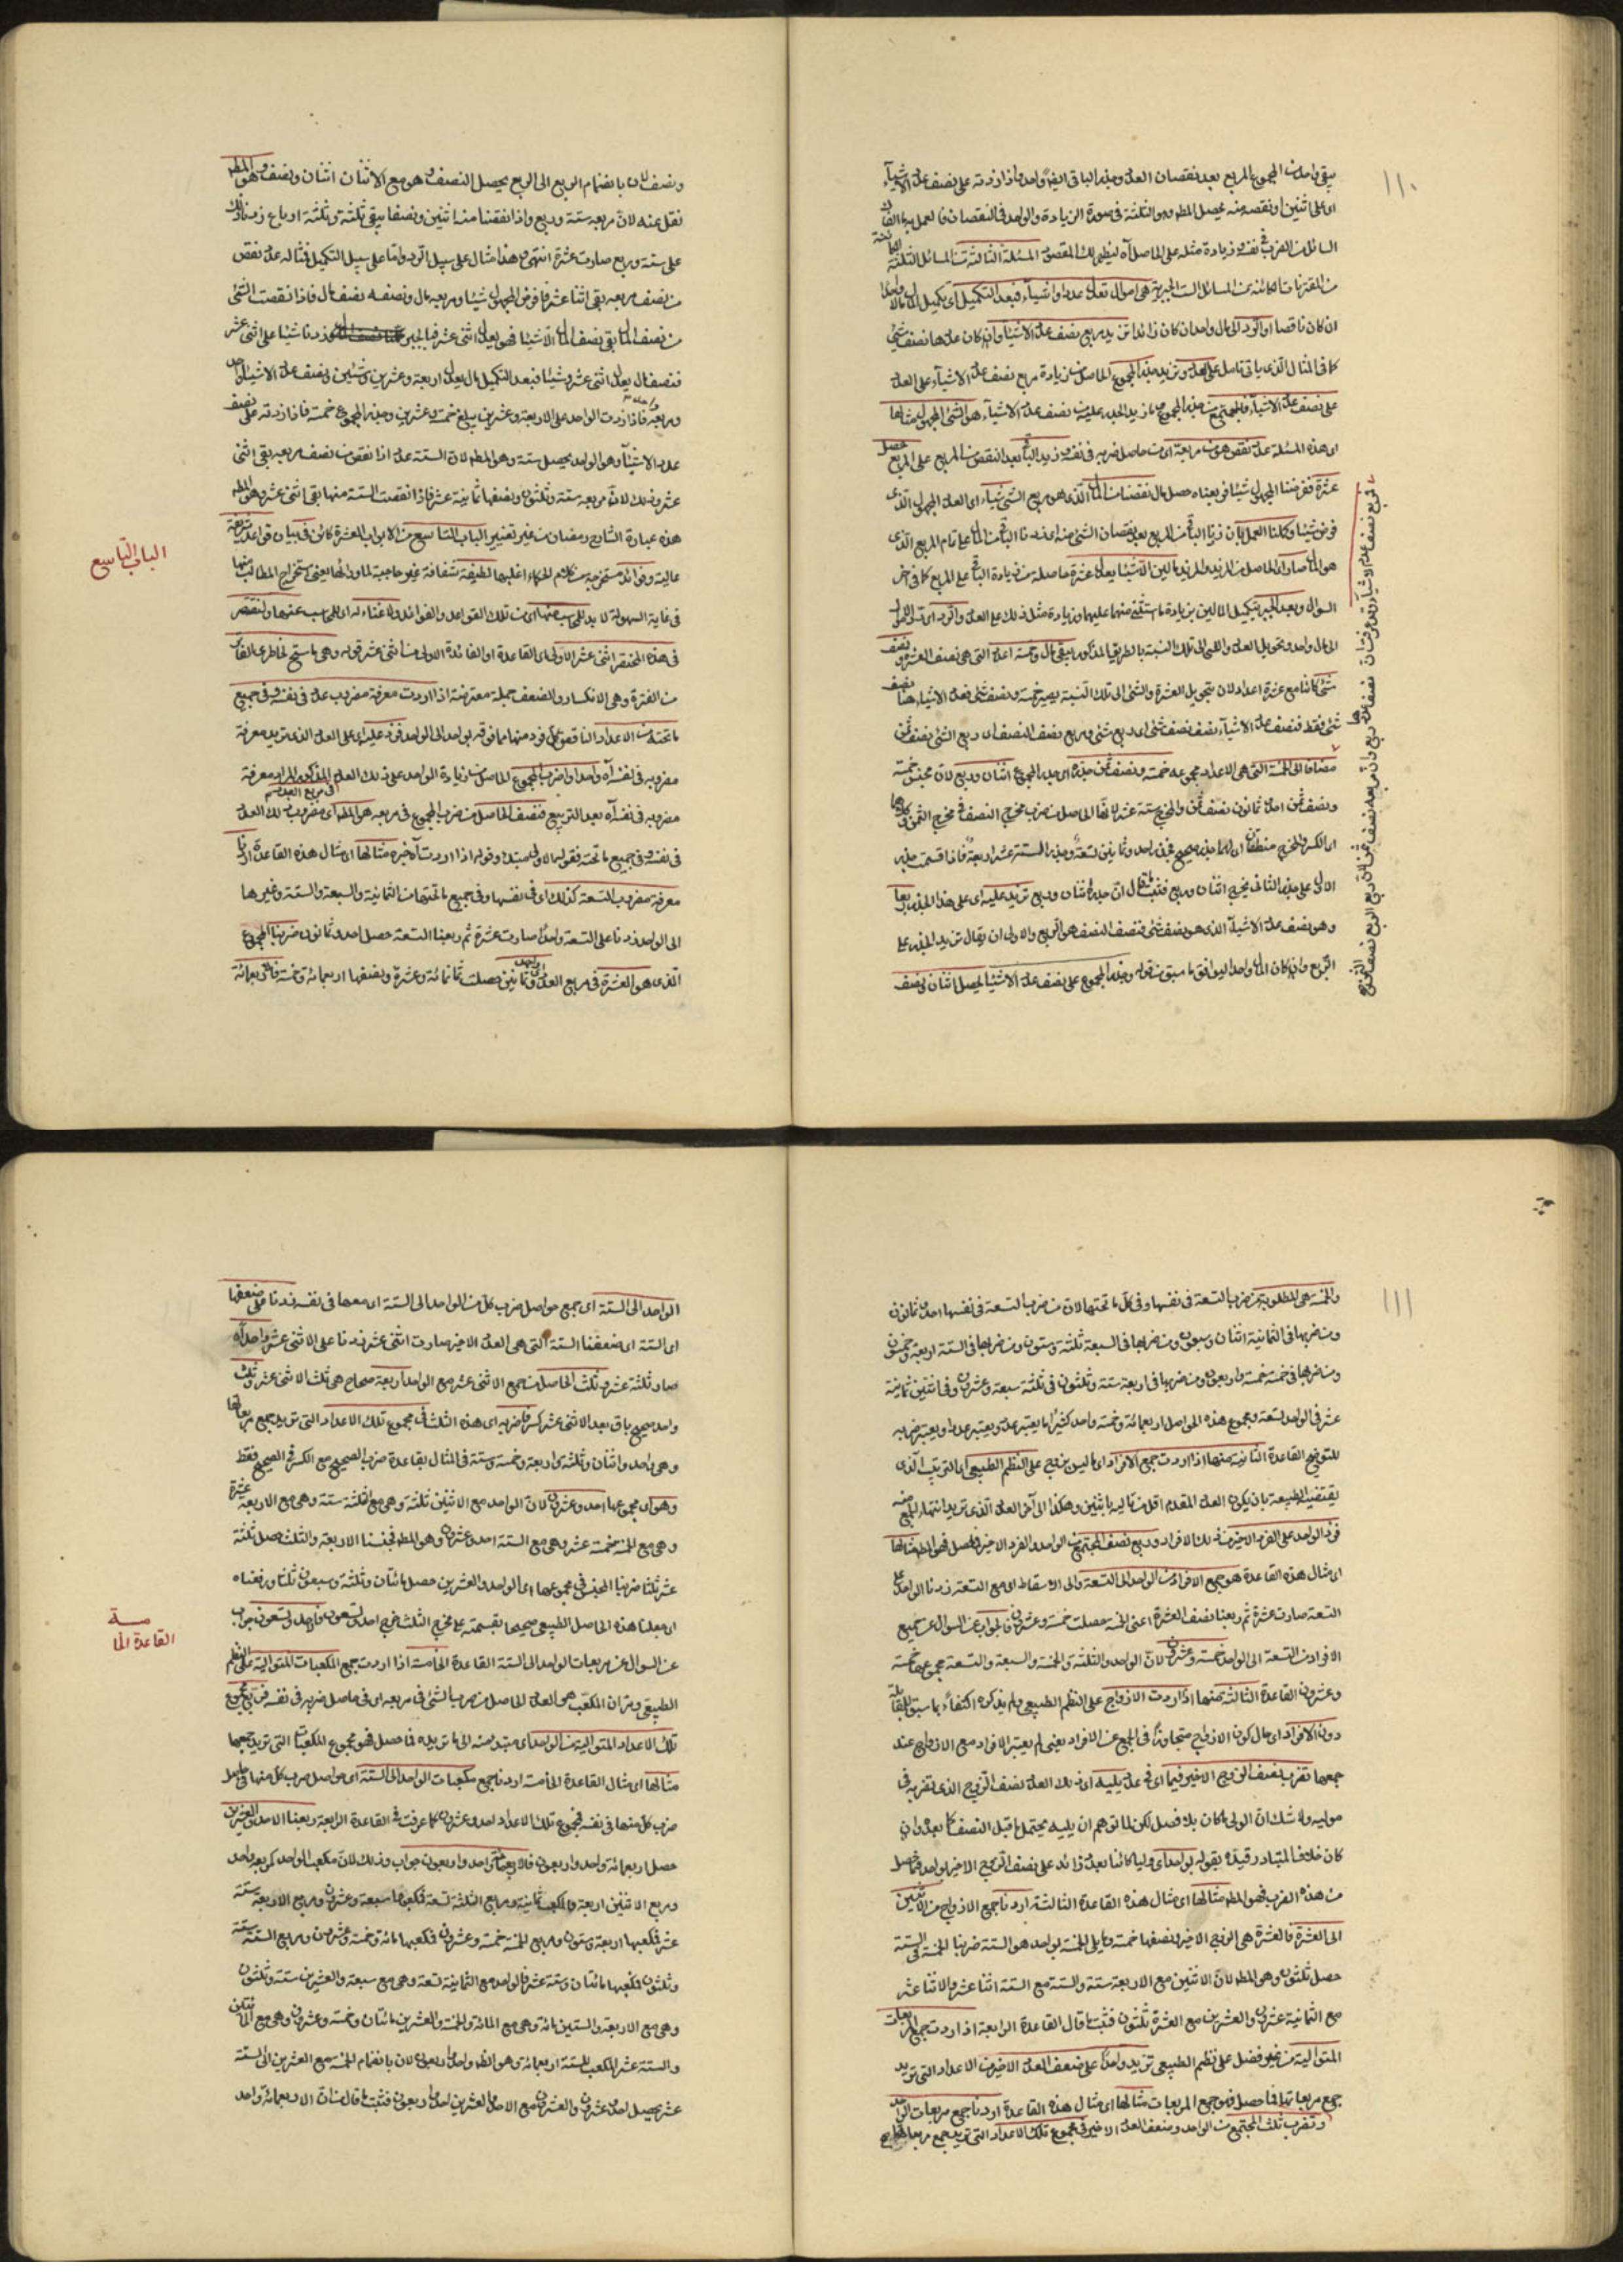 ١١٠
يبقى واحد من المجموع المربع بعد نقصان العدد وجذر الباقى ايضا واحد فاذا زدته على نصف عدد الاشياء
اى على اثنين او نقصه منه يحصل المط وهو الثلثة فى صورة الزيادة والواحد فى النقصان
السائل من الضرب فى نفسه وزيادة مثله على الحاصل آه ليظهر لك المقصود المسئلة الثالثة من المسائل الثلثة
من المقترنات الكائنة من المسائل الست الجبرية هى اموال تعدل عددا واشياء فبعد التكميل اى تكميل المال مالا واحدا
ان كان ناقصا او الرد الى مال واحد ان كان زائدا تزيد مربع نصف عدد الاشياء وان كان عددها نصف شئ
كما فى المثال الذى ياتى تامل على العدد وتزيد جذر المجموع الحاصل من زيادة مربع نصف عدد الاشياء على العدد
على نصف عدد الاشياء فالمجتمع من جذر المجموع وما زيد الجذر عليه من نصف عدد الاشياء هو الشئ المجهول مثالها
اى هذه المسئلة عدد نقص هو من مربعه اى من حاصل ضربه فى نفسه وزيد الباقى بعد النقص من المربع على المربع حصل
عشرة ففرضنا المجهول شيئا وربعناه حصل مال نقصنا من المال الذى هو مربع الشئ شيئا اى العدد المجهول الذى
فرض شيئا وكملنا العمل بان زدنا الباقى من المربع بعد نقصان الشئ منه اى زدنا الباقى من المال على تمام المربع الذى
هو المال صار اى الحاصل من المزيد والمزيد مالين الا شيئا يعدل عشرة حاصلة من زيادة الباقى على المربع كما فى آخر
السؤال وبعد الجبر بتكميل المالين بزيادة ما استثنى منهما عليهما وزيادة مثل ذلك على العدد والرد اى رد الاموال
الى مال واحد وتحويل العدد والشئ الى تلك النسبة بالطريق المذكور يبقى مال وخمسة اعداد التى هى نصف العشرة ونصف
شئ كائنا مع عشرة اعداد لان تحويل العشرة والشئ الى تلك النسبة يصير خمسة ونصف شئ فعدد الاشياء هنا نصف
شئ فقط فنصف عدد الاشياء نصف نصف شئ اى ربع شئ ومربع نصف النصف اى ربع الشئ نصف ثمن
مضافا الى الخمسة التى هى الاعداد مجموعه خمسة ونصف ثمن جذره اى جذر المجموع اثنان وربع لان مجنس خمسة
ونصف ثمن احد وثمانون نصف ثمن والمخرج ستة عشر لانها الحاصل من ضرب مخرج النصف فى مخرج الثمن وكلاهما
اى الكسر والمخرج منطقان اى لهما جذر صحيح فجذر احد وثمانين تسعة وجذر الستة عشر اربعة فاذا قسمت جذر
الاول على جذر الثانى يخرج اثنان وربع فثبت ما قال ان جذره اثنان وربع تزيد عليه اى على هذا الجذر ربعا
وهو نصف عدد الاشياء الذى هو نصف شئ فنصف النصف هو الربع والاولى ان يقال تزيد الجذر على
الربع وان كان المال واحدا ليوافق ما سبق من قوله وجذر المجموع على نصف عدد الاشياء ليحصل اثنان ونصف
ونصف لان بانضمام الربع الى الربع يحصل النصف وهو مع الاثنان اثنان ونصف وهو المط
نقل عنه لان مربعه ستة وربع واذا نقصنا منه اثنين ونصفا يبقى ثلثة وثلثة ارباع زدنا ذلك
على ستة وربع صارت عشرة انتهى وهذا مثال على سبيل الرد واما على سبيل التكميل فمثاله عدد نقص
من نصف مربعه بقى اثنا عشر فافرض المجهول شيئا ومربعه مال ونصفه نصف مال فاذا نقصت الشئ
من نصف المال بقى نصف المال الا شيئا فهو يعدل اثنى عشر فبالجبر زدنا شيئا على اثنى عشر
فنصف مال يعدل اثنى عشر وشيئا فبعد التكميل مال يعدل اربعة وعشرين وشيئين ونصف عدد الاشياء واحد
ومربعه واحد فاذا زدت الواحد على الاربعة وعشرين يبلغ خمسة وعشرين وجذر المجموع خمسة فاذا زدته على نصف
عدد الاشياء وهو الواحد يحصل ستة وهو المط لان الستة عدد اذا نقص من نصف مربعه بقى اثنى
عشر وذلك لان مربعه ستة وثلثون ونصفها ثمانية عشر فاذا نقصت الستة منها بقى اثنى عشر وهو المط
هذه عبارة الشارح رمضان من غير تغيير الباب التاسع من الابواب العشرة كائن فى بيان قواعد شريفة
الباب التاسع
عالية وفوائد مستخرجة من كلام الحكماء اغلبها لطيفة شفافة غير حاجبة لما ورائها يعنى استخراج المطالب منها
فى غاية السهولة لا بد للمحاسب منها اى من تلك القواعد والفوائد ولا غناء له اى للمحاسب عنها ولنقتصر
فى هذه المختصر اثنى عشر الاولى اى القاعدة او الفائدة الاولى من اثنى عشر قوله وهى ما سنح لخاطرى الفاتر
من الفترة وهى الانكسار والضعف جملة معترضة اذا اردت معرفة مضروب عدد فى نفسه وفى جميع
ما تحته من الاعداد الناقص كل فرد منها مما فوقه بواحد الى الواحد فزد عليه اى على العدد الذى تريد معرفة
مضروبه فى نفسه آه واحدا واضرب المجموع الحاصل من زيادة الواحد على ذلك العدد المذكور المراد معرفة
مضروبه فى نفسه آه بعد التربيع فنصف الحاصل من ضرب المجموع فى مربعه هو المط اى مضروب ذلك العدد
فى نفسه وفى جميع ما تحته فقوله الاولى مبتدء وقوله اذا اردت آه خبره مثالها اى مثال هذه القاعدة اردنا
معرفة مضروب التسعة كذلك اى فى نفسها وفى جميع ما تحتها من الثمانية والسبعة والستة وغيرها
الى الواحد زدنا على التسعة واحدا صارت عشرة ثم ربعنا التسعة حصل احد وثمانون ضربنا المجموع
الذى هو العشرة فى مربع العدد اى واحد وثمانين حصلت ثمانمائة وعشرة ونصفها اربعمائة وخمسة فاربعمائة
١١١
والخمسة هى المطلوبة من ضرب التسعة فى نفسها وفى كل ما تحتها لان من ضرب التسعة فى نفسها احد وثمانون
ومن ضربها فى الثمانية اثنان وسبعون ومن ضربها فى السبعة ثلثة وستون ومن ضربها فى الستة اربعة وخمسون
ومن ضربها فى خمسة خمسة واربعون ومن ضربها فى اربعة ستة وثلثون فى ثلثة سبعة وعشرون وفى اثنين ثمانية
عشر فى الواحد تسعة ومجموع هذه الحواصل اربعمائة وخمسة
للتوضيح القاعدة الثانية منها اذا اردت جمع الافراد اى ما ليس بزوج على النظم الطبيعى اى الترتيب الذى
يقتضيه الطبيعة بان يكون العدد المقدم اقل من تاليه باثنين وهكذا الى آخر العدد الذى تريد انتهاء الجمع منه
فزد الواحد على الفرد الاخير من ذلك الافراد وربع نصف المجتمع من الواحد والفرد الاخير فما حصل فهو المط مثالها
اى مثال هذه القاعدة هو جمع الافراد من الواحد الى التسعة والى الاسقاط اى مع التسعة زدنا الواحد على
التسعة صارت عشرة ثم ربعنا نصف العشرة اعنى الخمسة حصلت خمسة وعشرون فالجواب عن السؤال عن جميع
الافراد من التسعة الى الواحد خمسة وعشرون لان الواحد والثلثة والخمسة والسبعة والتسعة مجموعها خمسة
وعشرون القاعدة الثالثة منها اذا اردت الازواج على النظم الطبيعى ولم يذكره اكتفاء بما سبق للمقابلة
دون الافراد اى حال كون الازواج متجاوزا فى الجمع عن الافراد يعنى لم يعتبر الافراد مع الازواج عند
جمعها تضرب نصف الزوج الاخير فيما اى فى عدد يليه اى ذلك العدد نصف الزوج الذى تضربه فى
مواليه ولا شك ان الولى ما كان بلا فصل لكن لما توهم ان يليه يحتمل ما قبل النصف كما بعده وان
كان خلاف المتبادر قيده بقوله بواحد اى وليا كائنا بعدد زائد على نصف الزوج الاخير بواحد فما حصل
من هذه الضرب فهو المط مثالها اى مثال هذه القاعدة الثالثة اردنا جمع الازواج من الاثنين
الى العشرة فالعشرة هى الزوج الاخير ونصفها خمسة وما يلى الخمسة بواحد هو الستة ضربنا الخمسة فى الستة
حصل ثلثون وهو المط لان الاثنين مع الاربعة ستة والستة مع الستة اثنا عشر والاثنا عشر
مع الثمانية عشرون والعشرين مع العشرة ثلثون فثبت ما قال القاعدة الرابعة اذا اردت جمع المربعات
المتوالية من غير فضل على نظم الطبيعى تزيد واحدا على ضعف العدد الاخير من الاعداد التى تريد
جمع مربعاتها فما حصل فهو جمع المربعات مثالها اى مثال هذه القاعدة اردنا جمع مربعات الواحد
وتضرب ثلث المجتمع من الواحد وضعف العدد الاخير فى مجموع تلك الاعداد التى تريد جمع مربعاتها
الواحد الى الستة اى جمع حواصل ضرب كل من الواحد الى الستة اى معها فى نفسه زدنا على ضعفها
اى الستة اى ضعفنا الستة التى هى العدد الاخير صارت اثنى عشر زدنا على الاثنى عشر واحدا آه
صار ثلثة عشر وثلث الحاصل من جمع الاثنى عشر مع الواحد اربعة صحاح هى ثلث الاثنى عشر وثلث
واحد صحيح باق بعد الاثنى عشر كسر فاضربه اى هذه الثلث فى مجموع تلك الاعداد التى تريد جمع مربعاتها
وهى واحد واثنان وثلثة واربعة وخمسة وستة فى المثال بقاعدة ضرب الصحيح مع الكسر فى الصحيح فقط
وهو اى مجموعها احد وعشرون لان الواحد مع الاثنين ثلثة وهى مع الثلثة ستة وهى مع الاربعة عشرة
وهى مع الخمسة خمسة عشر وهى مع الستة احد وعشرون وهو المط فجنسنا الاربعة والثلث حصل ثلثة
عشر ثلثا ضربنا المجنس فى مجموعها اى الواحد والعشرين حصل مائتان وثلثة وسبعون ثلثا ورفعناه
اى جعلنا هذه الحاصل الطبيعى صحيحا بقسمته على مخرج الثلث خرج احد وتسعون فاحد وتسعون جواب
عن السؤال عن مربعات الواحد الى الستة القاعدة الخامسة اذا اردت جمع المكعبات المتوالية على النظم
القاعدة الخامسة
الطبيعى ومر ان المكعب هو العدد الحاصل من ضرب الشئ فى مربعه اى فى حاصل ضربه فى نفسه فربع مجموع
تلك الاعداد المتوالية من الواحد اى مبتدء منه الى ما تريده فما حصل فهو مجموع المكعبات التى تريد جمعها
مثالها اى مثال القاعدة الخامسة اردنا جمع مكعبات الواحد الى الستة اى حواصل ضرب كل منها فى حاصل
ضرب كل منها فى نفسه فمجموع تلك الاعداد احد وعشرون كما عرفت فى القاعدة الرابعة ربعنا الاحد والعشرين
حصل اربعمائة واحد واربعون فالاربعمائة واحد واربعون جواب وذلك لان مكعب الواحد كمربعه واحد
ومربع الاثنين اربعة والمكعب ثمانية ومربع الثلثة تسعة فمكعبها سبعة وعشرون ومربع الاربعة ستة
عشر فمكعبها اربعة وستون ومربع الخمسة خمسة وعشرون فمكعبها مائة وخمسة وعشرون ومربع الستة ستة
وثلثون فمكعبها مائتان وستة عشر فالواحد مع الثمانية تسعة وهى مع سبعة والعشرين ستة وثلثون
وهى مع الاربعة والستين مائة وهى مع المائة والخمسة والعشرين مائتان وخمسة وعشرون وهى مع المائتين
والستة عشر المكعب للستة اربعمائة وهو المط واحد واربعون لان بانضمام الخمسة مع العشرين الى الستة
عشر يحصل احد وعشرون والعشرون مع الاحد والعشرين احد واربعون فثبت ما قال من ان الاربعمائة واحد